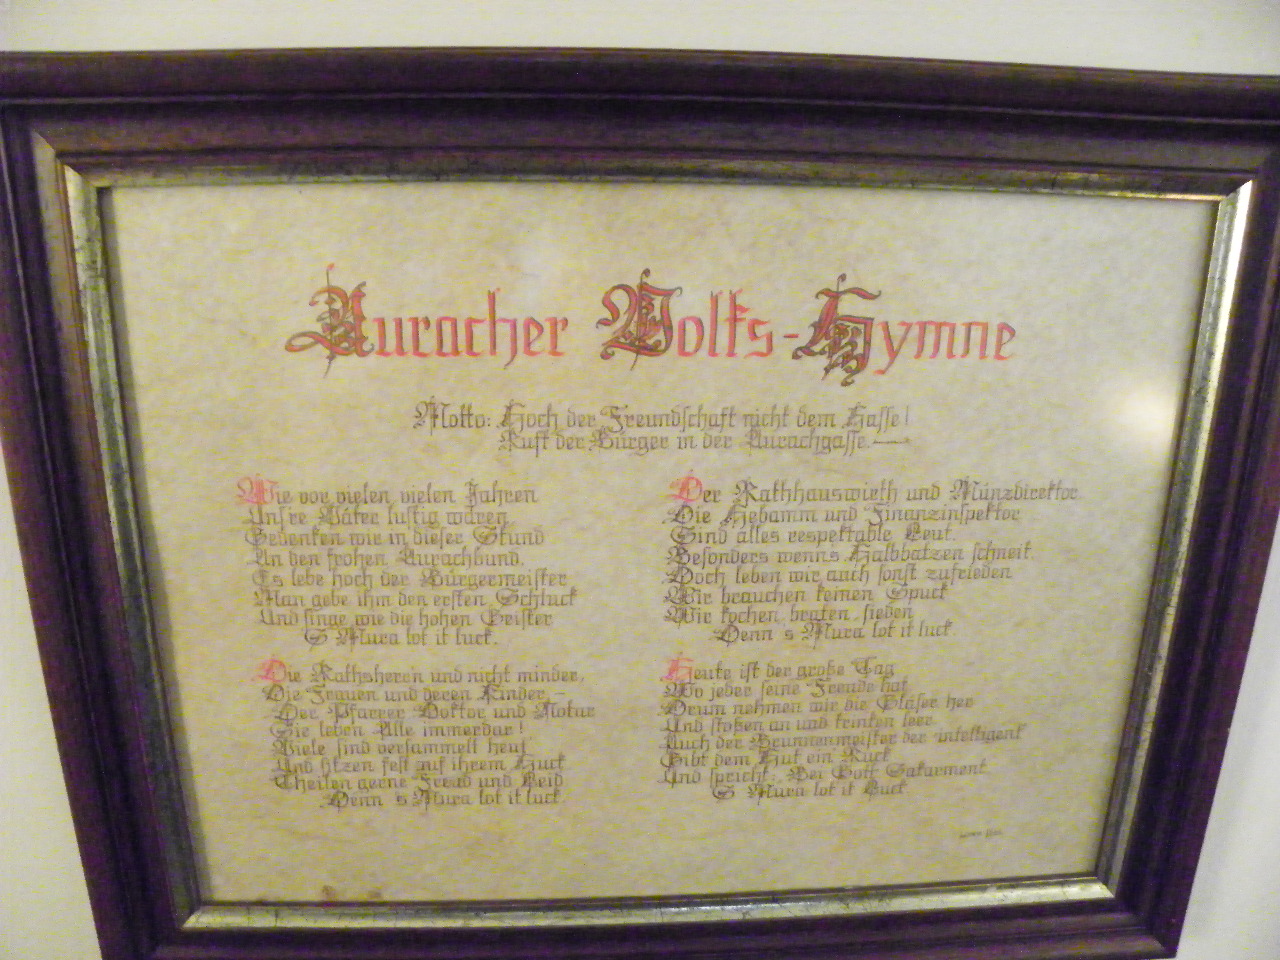 Auracher Volks-Hymne
Motto: Hoch der Freundschaft nicht dem Hasse!
Ruft der Bürger in der Aurachgasse.—
Wie vor vielen vielen Jahren
Uns're Väter lustig waren
Gedenken wir in dieser Stund
An den frohen Aurachbund.
Es lebe hoch der Bürgermeister
Man gebe ihm den ersten Schluck
Und singe wie die hohen Geister
S Mura lot it luck.
Die Rathsherren und nicht minder,
Die Frauen und deren Kinder,–
Der Pfarrer Doktor und Notar
Sie leben Alle immerdar!
Viele sind versammelt heut
Und sitzen fest auf ihrem Huck
Theilen gerne Freud und Leid
Denn s Mura lot it luck.
Der Rathhauswirth und Münzdirektor
Die Hebamm und Finanzinspektor
Sind alles respektable Leut.
Besonders wenns Halbbatzen schneit.
Doch leben wir auch sonst zufrieden
Wir brauchen keinen Spuck
Wir kochen braten sieden
Denn s Mura lot it luck.
Heute ist der große Tag
Wo jeder seine Freude hat
Drum nehmen wir die Gläser her
Und stoßen an und trinken leer
Auch der Brunnenmeister der intelligent
Gibt dem Hut ein Ruck
Und spricht: Bei Gott Sakarment
S Mura lot it Luck.